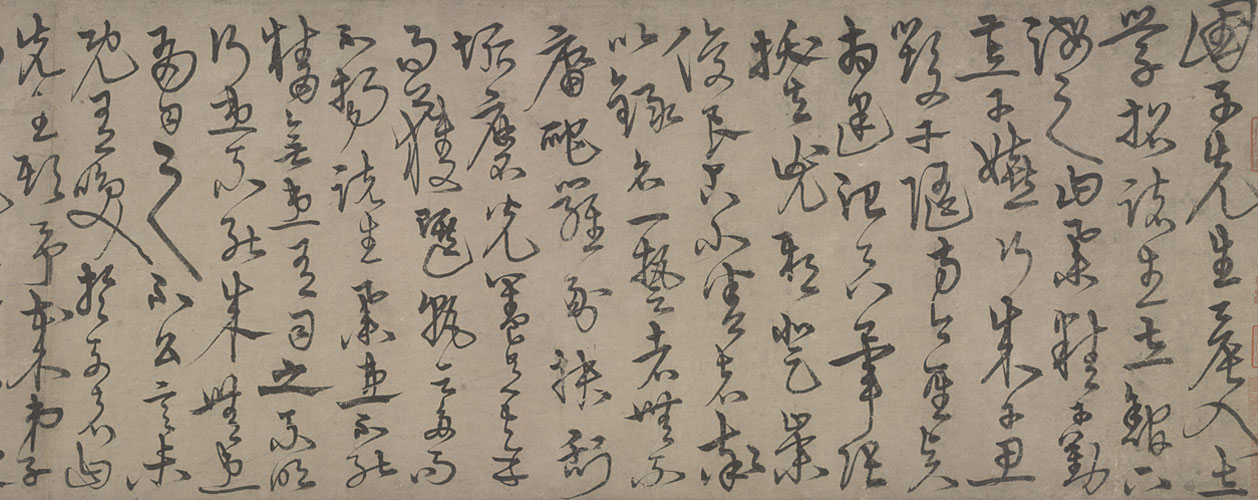 國子先生晨入太
學招諸生立館下
誨之曰業精於勤
荒於嬉行成於思
毀於隨方今聖賢
相逢治具畢張
拔去兇邪登崇
俊良占小善者率
以錄名一藝者無不
庸爬羅剔抉刮
垢磨光蓋有幸
而獲選孰云多而
不揚諸生業患不能
精無患有司之不明
行患不能成無患
有司之不公言未
既有笑於列者曰
先生欺予哉弟子